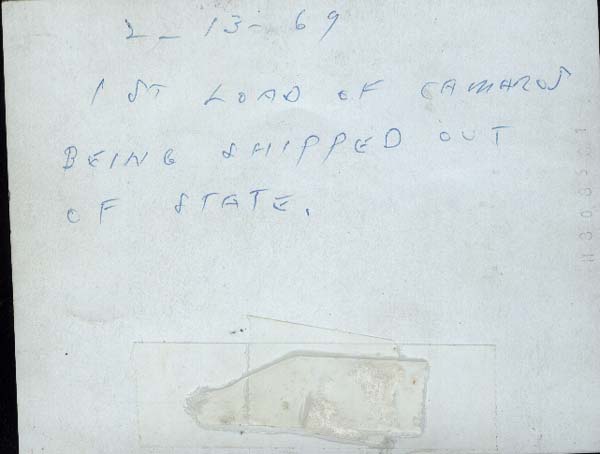 2-13-69
1ST LOAD OF CAMAROS
BEING SHIPPED OUT
OF STATE.